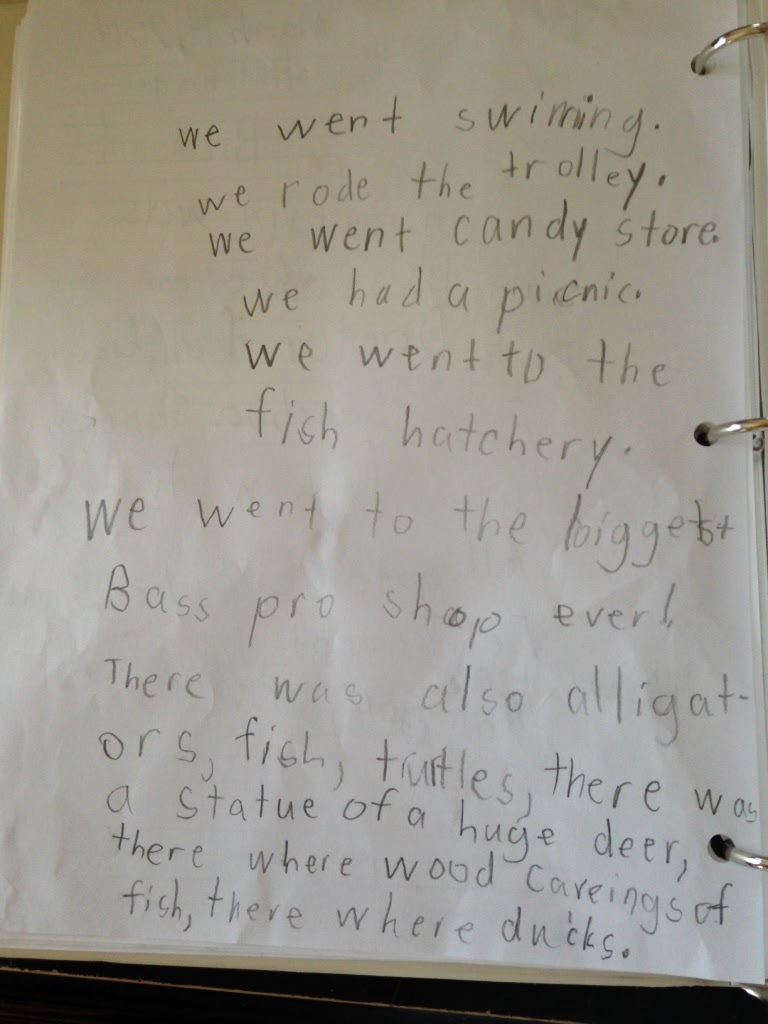 we went swiming.
we rode the trolley.
we went candy store.
we had a picnic.
we went to the
fish hatchery.
We went to the biggest
Bass pro shop ever!
There was also alligat-
ors, fish, turtles, there was
a statue of a huge deer,
there where wood careings of
fish, there where ducks.